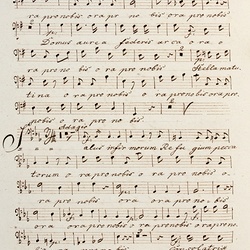 ra pro nobis ora pro no bis ora pro nobis
Domus aurea federis arca ora o
ra pro no bis ora pro nobis Stella matu
tina o ra pro nobis o ra pro nobis ora pro
nobis o ra pro no bis.
Adagio
Salus infirmorum Re fu gium pecca
torum o ra pro nobis o ra pro nobis
ra pro nobis ora pro no bis
ora pro nobis o ra pro nobis ora pro no
Consolatrix